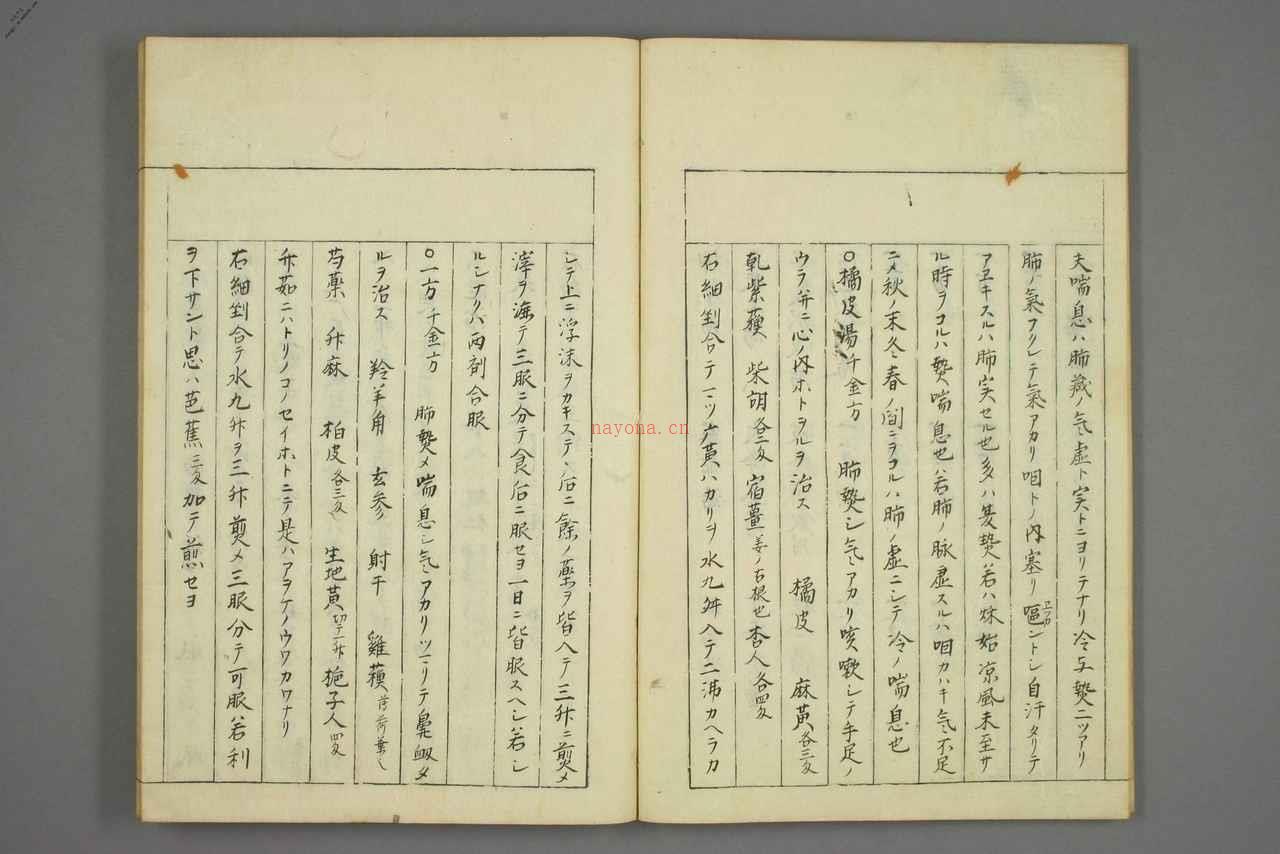 夫喘息ハ肺藏ノ气虚ト実トニヨリテナリ冷与㷴二ツアリ
肺ノ氣フリレテ氣アカリ咽トノ内塞リ嘔ントシ自汗タリテ
アヱキスルハ肺実セル也多ハ夏㷴若ハ秋始凉風未至サ
ル時ヲコルハ㷴喘息也若肺ノ脉虚スルハ咽カハキ气不足
ニメ秋ノ末冬春ノ間ニヲコルハ肺ノ虚ニシテ冷ノ喘息也
〇橘皮湯千金方 肺㷴シ气アカリ咳嗽シテ手足ノ
ウラ并ニ心ノ内ホトヲルヲ治ス 橘皮 麻黄各三㕛
乹紫蘓 柴胡各二㕛 宿薑姜ノ古根也 杏人各四㕛
右細剉合テ一ツ 黄ハカリヲ水九舛入テ二沸カヘラカ
シテ上ニ浮沫ヲカキステ后ニ餘ノ藥ヲ皆入テ三舛ニ煎メ
滓ヲ漉テ三服ニ分テ食后ニ服セヨ一日ニ皆服スヘシ若シ
ルシナリハ両剤合服
〇一方千金方 肺㷴メ喘息シ气アカリツマリテ鼻衂メ
ルヲ治ス 羚羊角 玄参 射干 雞蘓薄荷葉
芍藥 舛麻 柏皮各三㕛 生地黄切テ一舛 梔子人四㕛
茹ニハトリノコノセイホトニテ是ハアヲナノウワカワナリ
右細剉合テ水九舛ヲ三舛煎メ三服分テ可服若利
ヲ下サント思ハ芭蕉三㕛加テ煎セヨ
nayona.cn